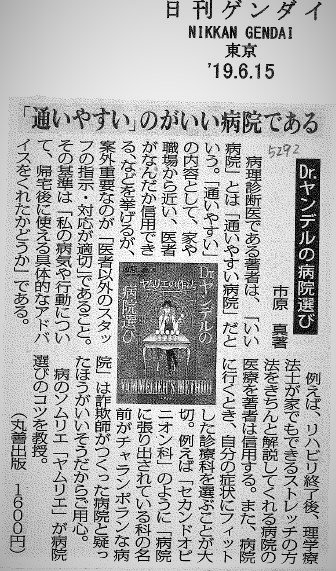 日刊ゲンダイ
NIKKAN GENDAI
東京
'19.6.15
「通いやすい」のがいい病院である
5292
Dr.ヤンデルの病院選び
市原 真著
病理診断医である著者は、「いい
病院」とは「通いやすい病院」だと
いう。「通いやすい」
の内容として、家や
職場から近い、医者
がなんだか信用でき
る、などを挙げるが、
案外重要なのが「医者以外のスタッ
フの指示・対応が適切」であること。
その基準は「私の病気や行動につい
て、帰宅後に使える具体的なアドバ
イスをくれたかどうか」である。
例えば、リハビリ終了後、理学療
法士が家でもできるストレッチの方
法をきちんと解説してくれる病院の
医療を著者は信用する。また、病院
に行くとき、自分の症状にフィット
した診療科を選ぶことが大
切。例えば「セカンドオピ
ニオン科」のように「病院
に張り出されている科の名
前がチャランポランな病
院」は詐欺師がつくった病院と疑っ
たほうがいいそうだからご用心。
病のソムリエ「ヤムリエ」が病院
選びのコツを教授。
(丸善出版 1600円)
Dr.ヤンデルの
病院選び
ヤムリエの作法
YOMMELIER'S METHOD